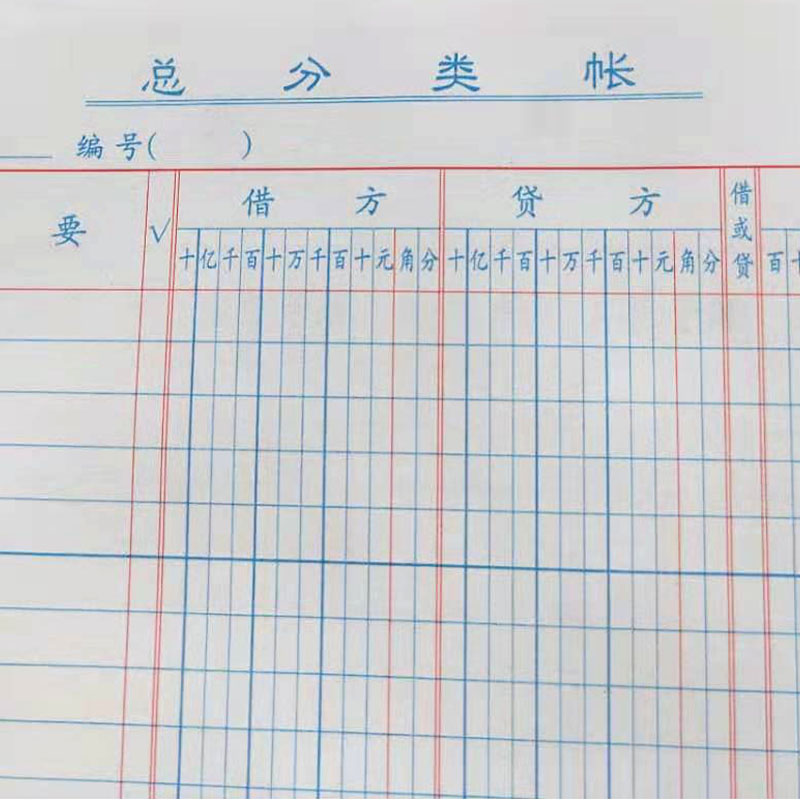 总 分 类 帐
编号( )
借 方 贷 方 借或贷
要 √
十亿千百十万千百十元角分 十亿千百十万千百十元角分 百十